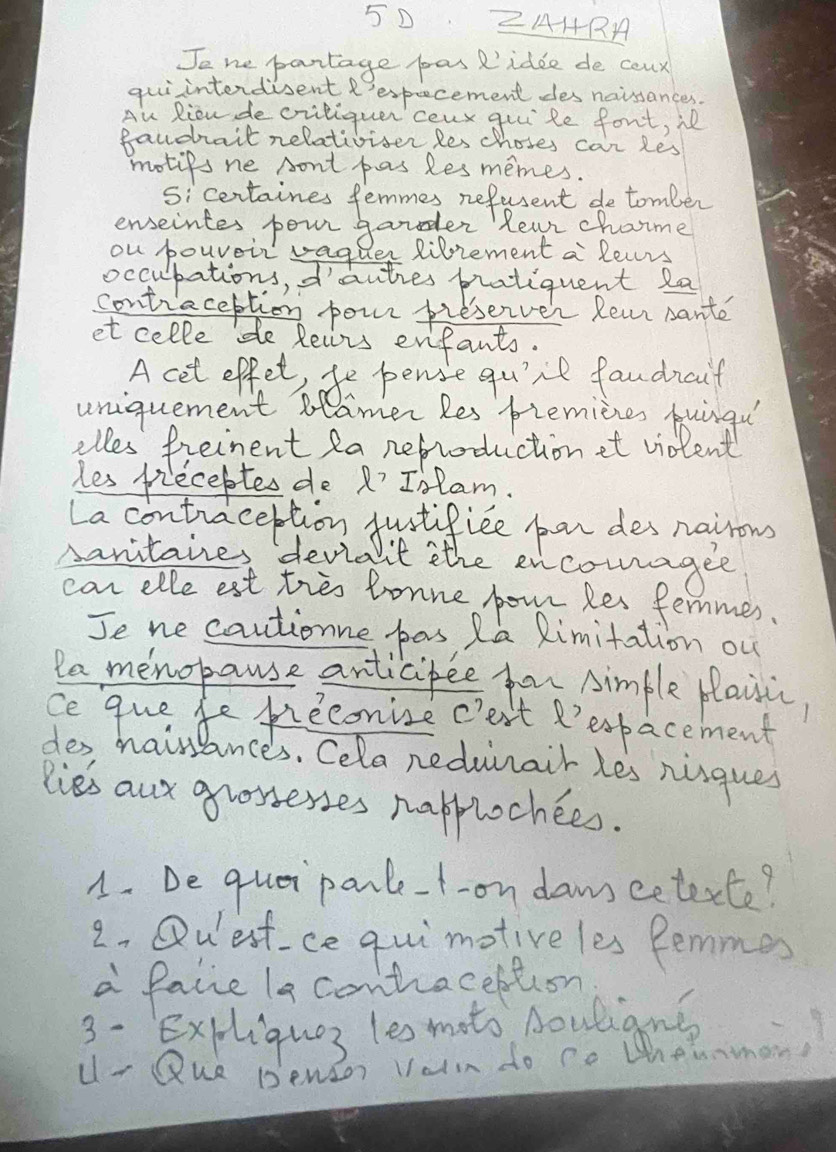 5D. ZAHRA
Je ne partage pas l'idée de ceux
qui interdisent l'espacement des naissances.
Au lieu de critiquer ceux qui le font, il
faudrait relativiser les choses car les
motifs ne sont pas les mêmes.
Si certaines femmes refusent de tomber
enseintes pour garder leur charme
ou pouvoir vaquer librement à leurs
occupations, d'autres pratiquent la
contraception pour préserver leur santé
et celle de leurs enfants.
A cet effet, je pense qu'il faudrait
uniquement blâmer les premières puisqu'
elles freinent la reproduction et violent
les préceptes de l'Islam.
La contraception justifiée par des raisons
sanitaires devrait être encouragée
car elle est très bonne pour les femmes.
Je ne cautionne pas, la limitation ou
la ménopause anticipée par simple plaisir,
Ce que je préconise c'est l'espacement
des naissances. Cela réduirait les risques
liés aux grossesses rapprochées.
1. De quoi parle-t-on dans ce texte?
2. Qu'est-ce qui motive les femmes
à faire la contraception
3- Expliquez les mots soulignés
4- Que pensez de ce